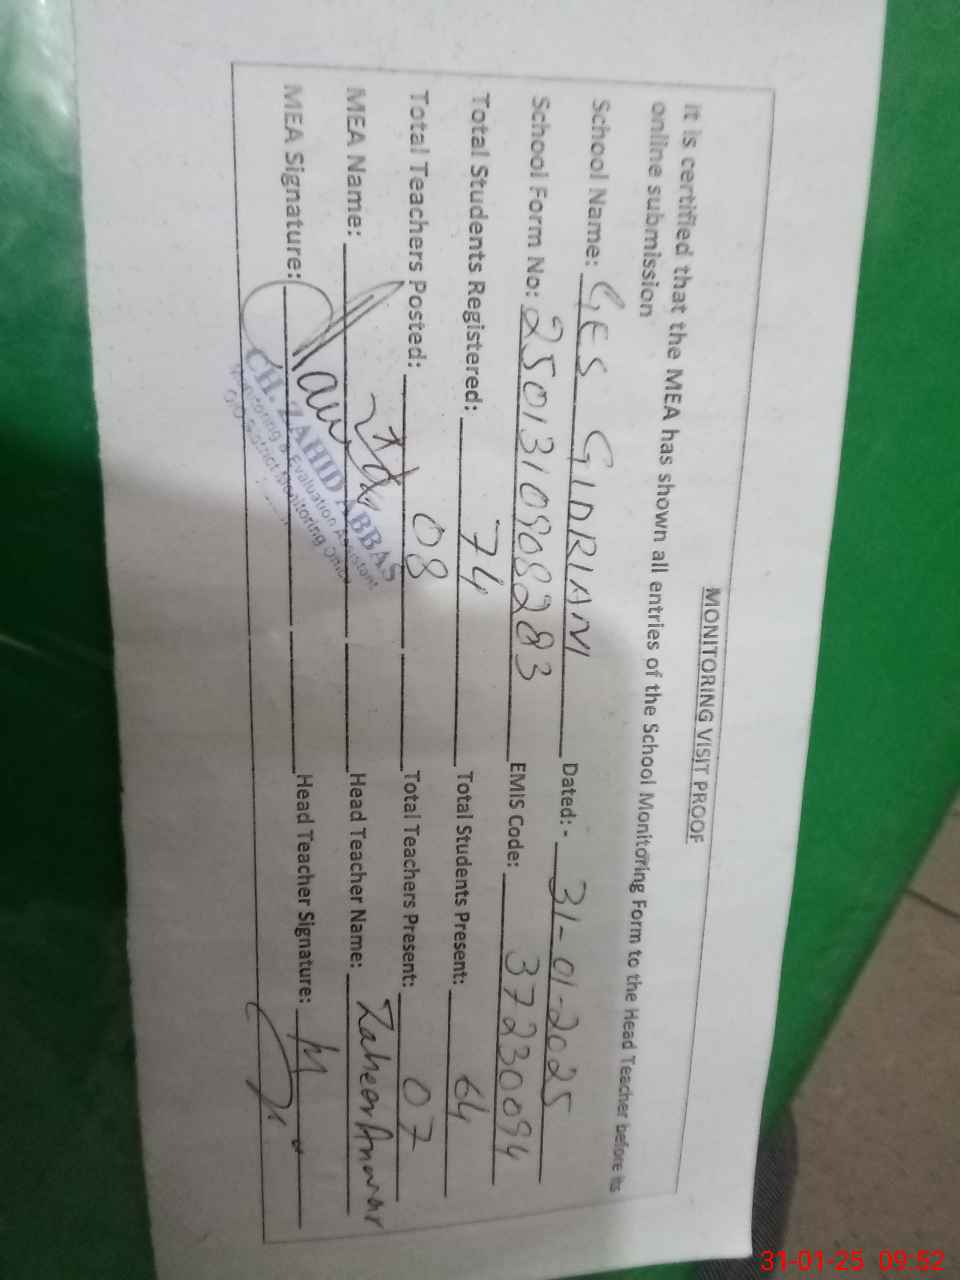 MONITORING VISIT PROOF
It is certified that the MEA has shown all entries of the School Monitoring Form to the Head Teacher before its
online submission
School Name: GES GIDRIAN Dated:- 31-01-2025
School Form No: 250131090828​3 EMIS Code: 37230094
Total Students Registered: 74 Total Students Present: 64
Total Teachers Posted: 08 Total Teachers Present: 07
MEA Name: Head Teacher Name: Zaheer Anwar
MEA Signature: Head Teacher Signature:
CH. ZAHID ABBAS
Monitoring & Evaluation Assistant
O/O District Monitoring Office
31-01-25 09:52